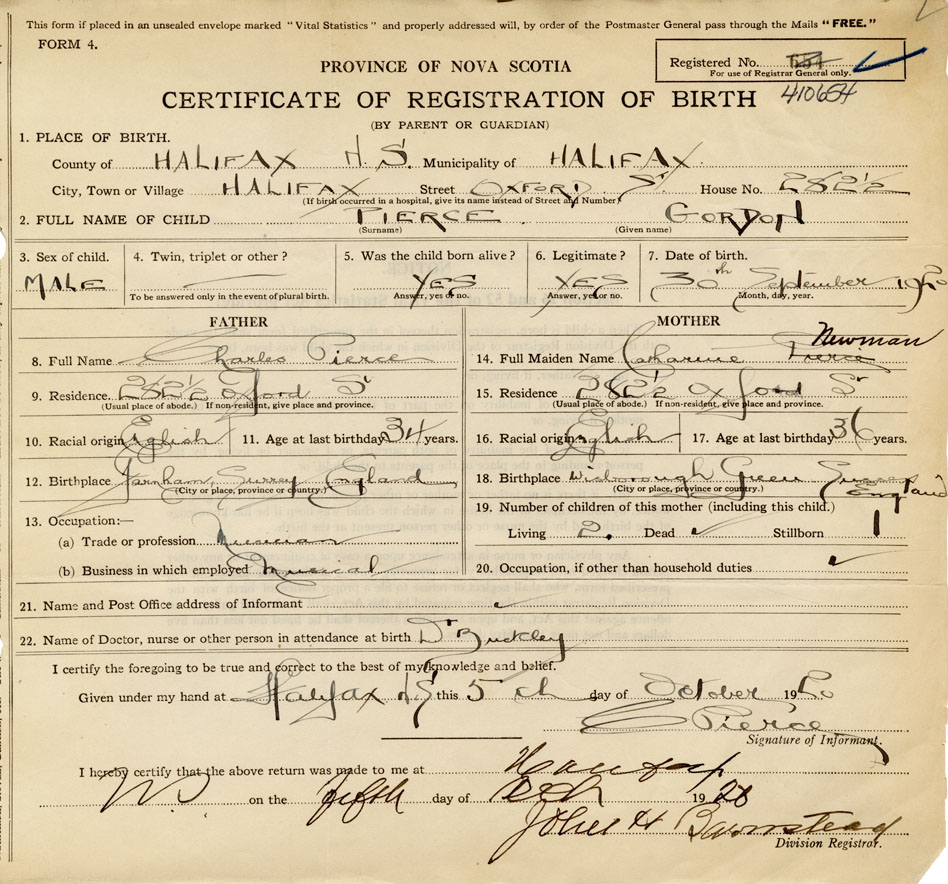 This form if placed in an unsealed envelope marked "Vital Statistics" and properly addressed will, by order of the Postmaster General pass through the Mails "FREE."
FORM 4.
Registered No. 554
For use of Registrar General only.
410654
PROVINCE OF NOVA SCOTIA
CERTIFICATE OF REGISTRATION OF BIRTH
(BY PARENT OR GUARDIAN)
1. PLACE OF BIRTH.
County of HALIFAX N.S. Municipality of HALIFAX.
City, Town or Village HALIFAX Street OXFORD St House No. 282½
(If birth occurred in a hospital, give its name instead of Street and Number)
2. FULL NAME OF CHILD PIERCE GORDON
(Surname) (Given name)
3. Sex of child. 4. Twin, triplet or other? 5. Was the child born alive? 6. Legitimate? 7. Date of birth.
MALE YES YES 30th September 1920
To be answered only in the event of plural birth. Answer, yes or no. Answer, yes or no. Month, day, year.
FATHER MOTHER
Newman
8. Full Name Charles Pierce 14. Full Maiden Name Catharine Pierce
9. Residence. 282½ Oxford St 15. Residence 282½ Oxford St
(Usual place of abode.) If non-resident, give place and province. (Usual place of abode.) If non-resident, give place and province.
10. Racial origin English 11. Age at last birthday 34 years. 16. Racial origin English 17. Age at last birthday 36 years.
12. Birthplace Farnham, Surrey England 18. Birthplace Green Sussex England
(City or place, province or country.) (City or place, province or country.)
19. Number of children of this mother (including this child.)
13. Occupation:—
Living 2. Dead ✓ Stillborn 1
(a) Trade or profession Musician
(b) Business in which employed Musical 20. Occupation, if other than household duties ✓
21. Name and Post Office address of Informant ✓
22. Name of Doctor, nurse or other person in attendance at birth Dr Buckley
I certify the foregoing to be true and correct to the best of my knowledge and belief.
Given under my hand at Halifax N.S this 5th day of October 1920
C Pierce
Signature of Informant.
I hereby certify that the above return was made to me at Halifax
NS on the fifth day of Oct 1920
John H Barnstead
Division Registrar.